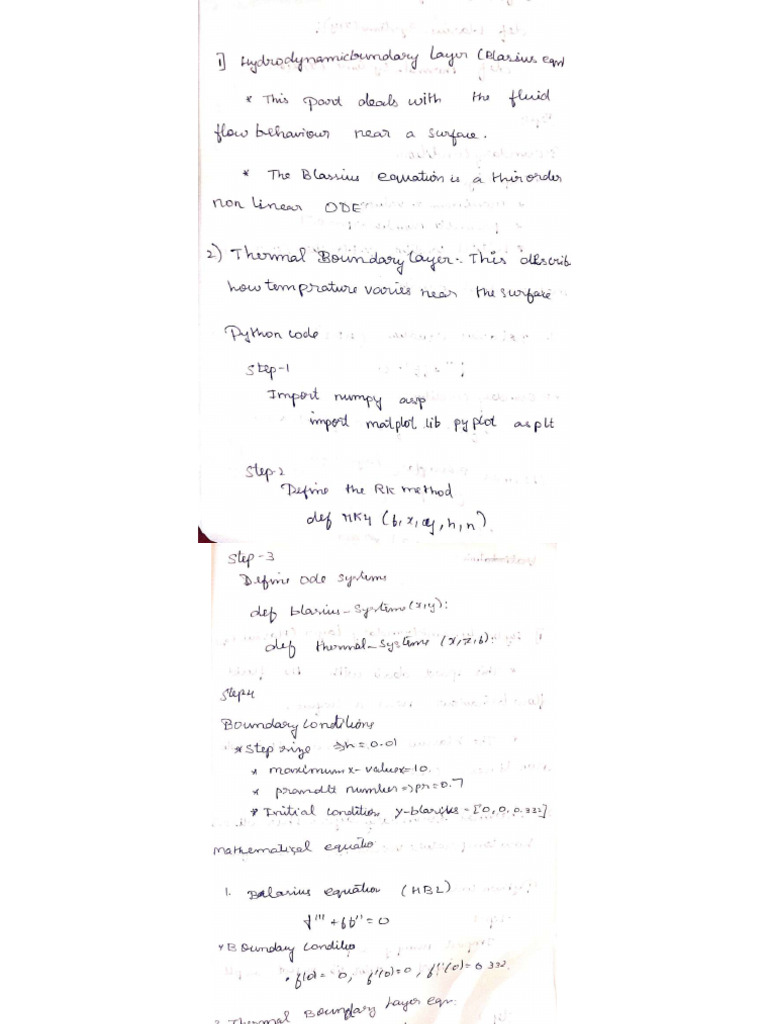 1] Hydrodynamicbundary Layer (Blasius eqn)
* This part deals with the fluid
flow behaviour near a surface.
* The Blassius equation is a thirorder
non linear ODE
2) Thermal Boundary layer. This describ
how temprature varies near the surface
Python code
Step-1
Import numpy asnp
import matplot.lib pyplot asplt
Step-2
Define the RK method
def RK4 (f, x, y, h, n)
Step-3
Define ode systems
def blarius-Systems (x,y):
def thermal-Systems (x, z, f):
Step4
Boundary Conditions
* Step size ⇒h=0.01
* maximum x-value=10.
* prandlt number=>pr=0.7
* Initial condition, y-blarius = [0, 0, 0.332]
Mathematical equatio
1. Balarius equation (HBL)
f''' + ff'' = 0
* Boundary Conditio
• f(0) = 0, f'(0)=0, f''(0)=0.332.
Thermal Boundary Layer eqn: